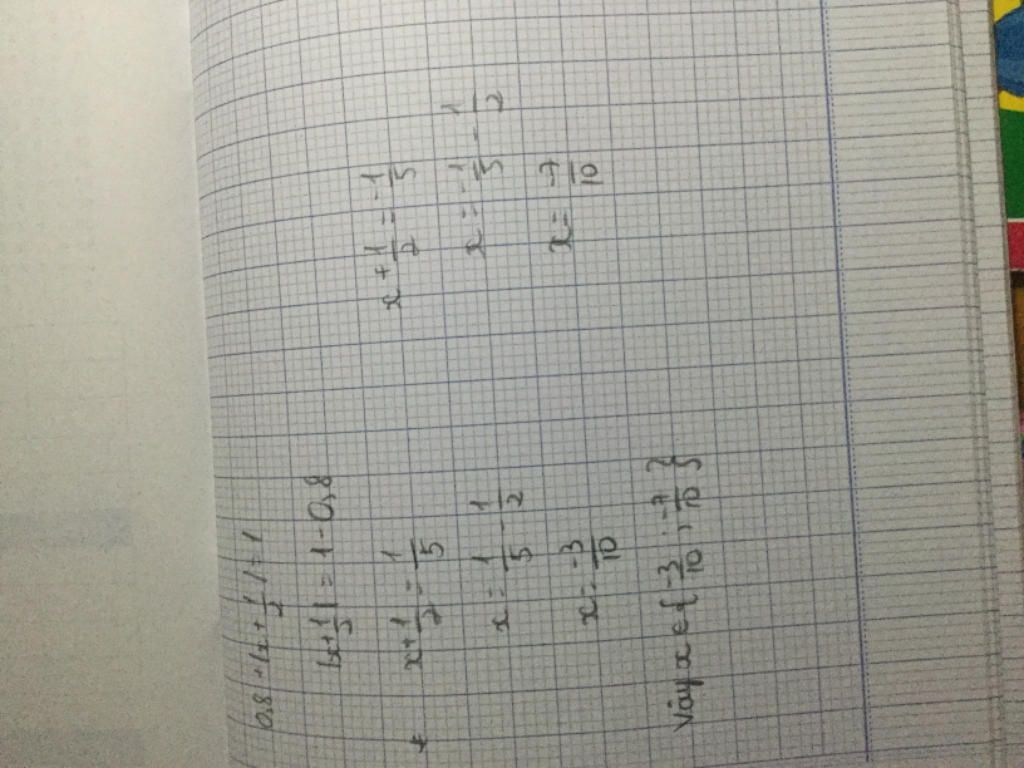 0,8 + |x + 1/2| = 1
|x + 1/2| = 1 - 0,8
* x + 1/2 = 1/5 x + 1/2 = -1/5
x = 1/5 - 1/2 x = -1/5 - 1/2
x = -3/10 x = -7/10
Vậy x ∈ {-3/10 ; -7/10}